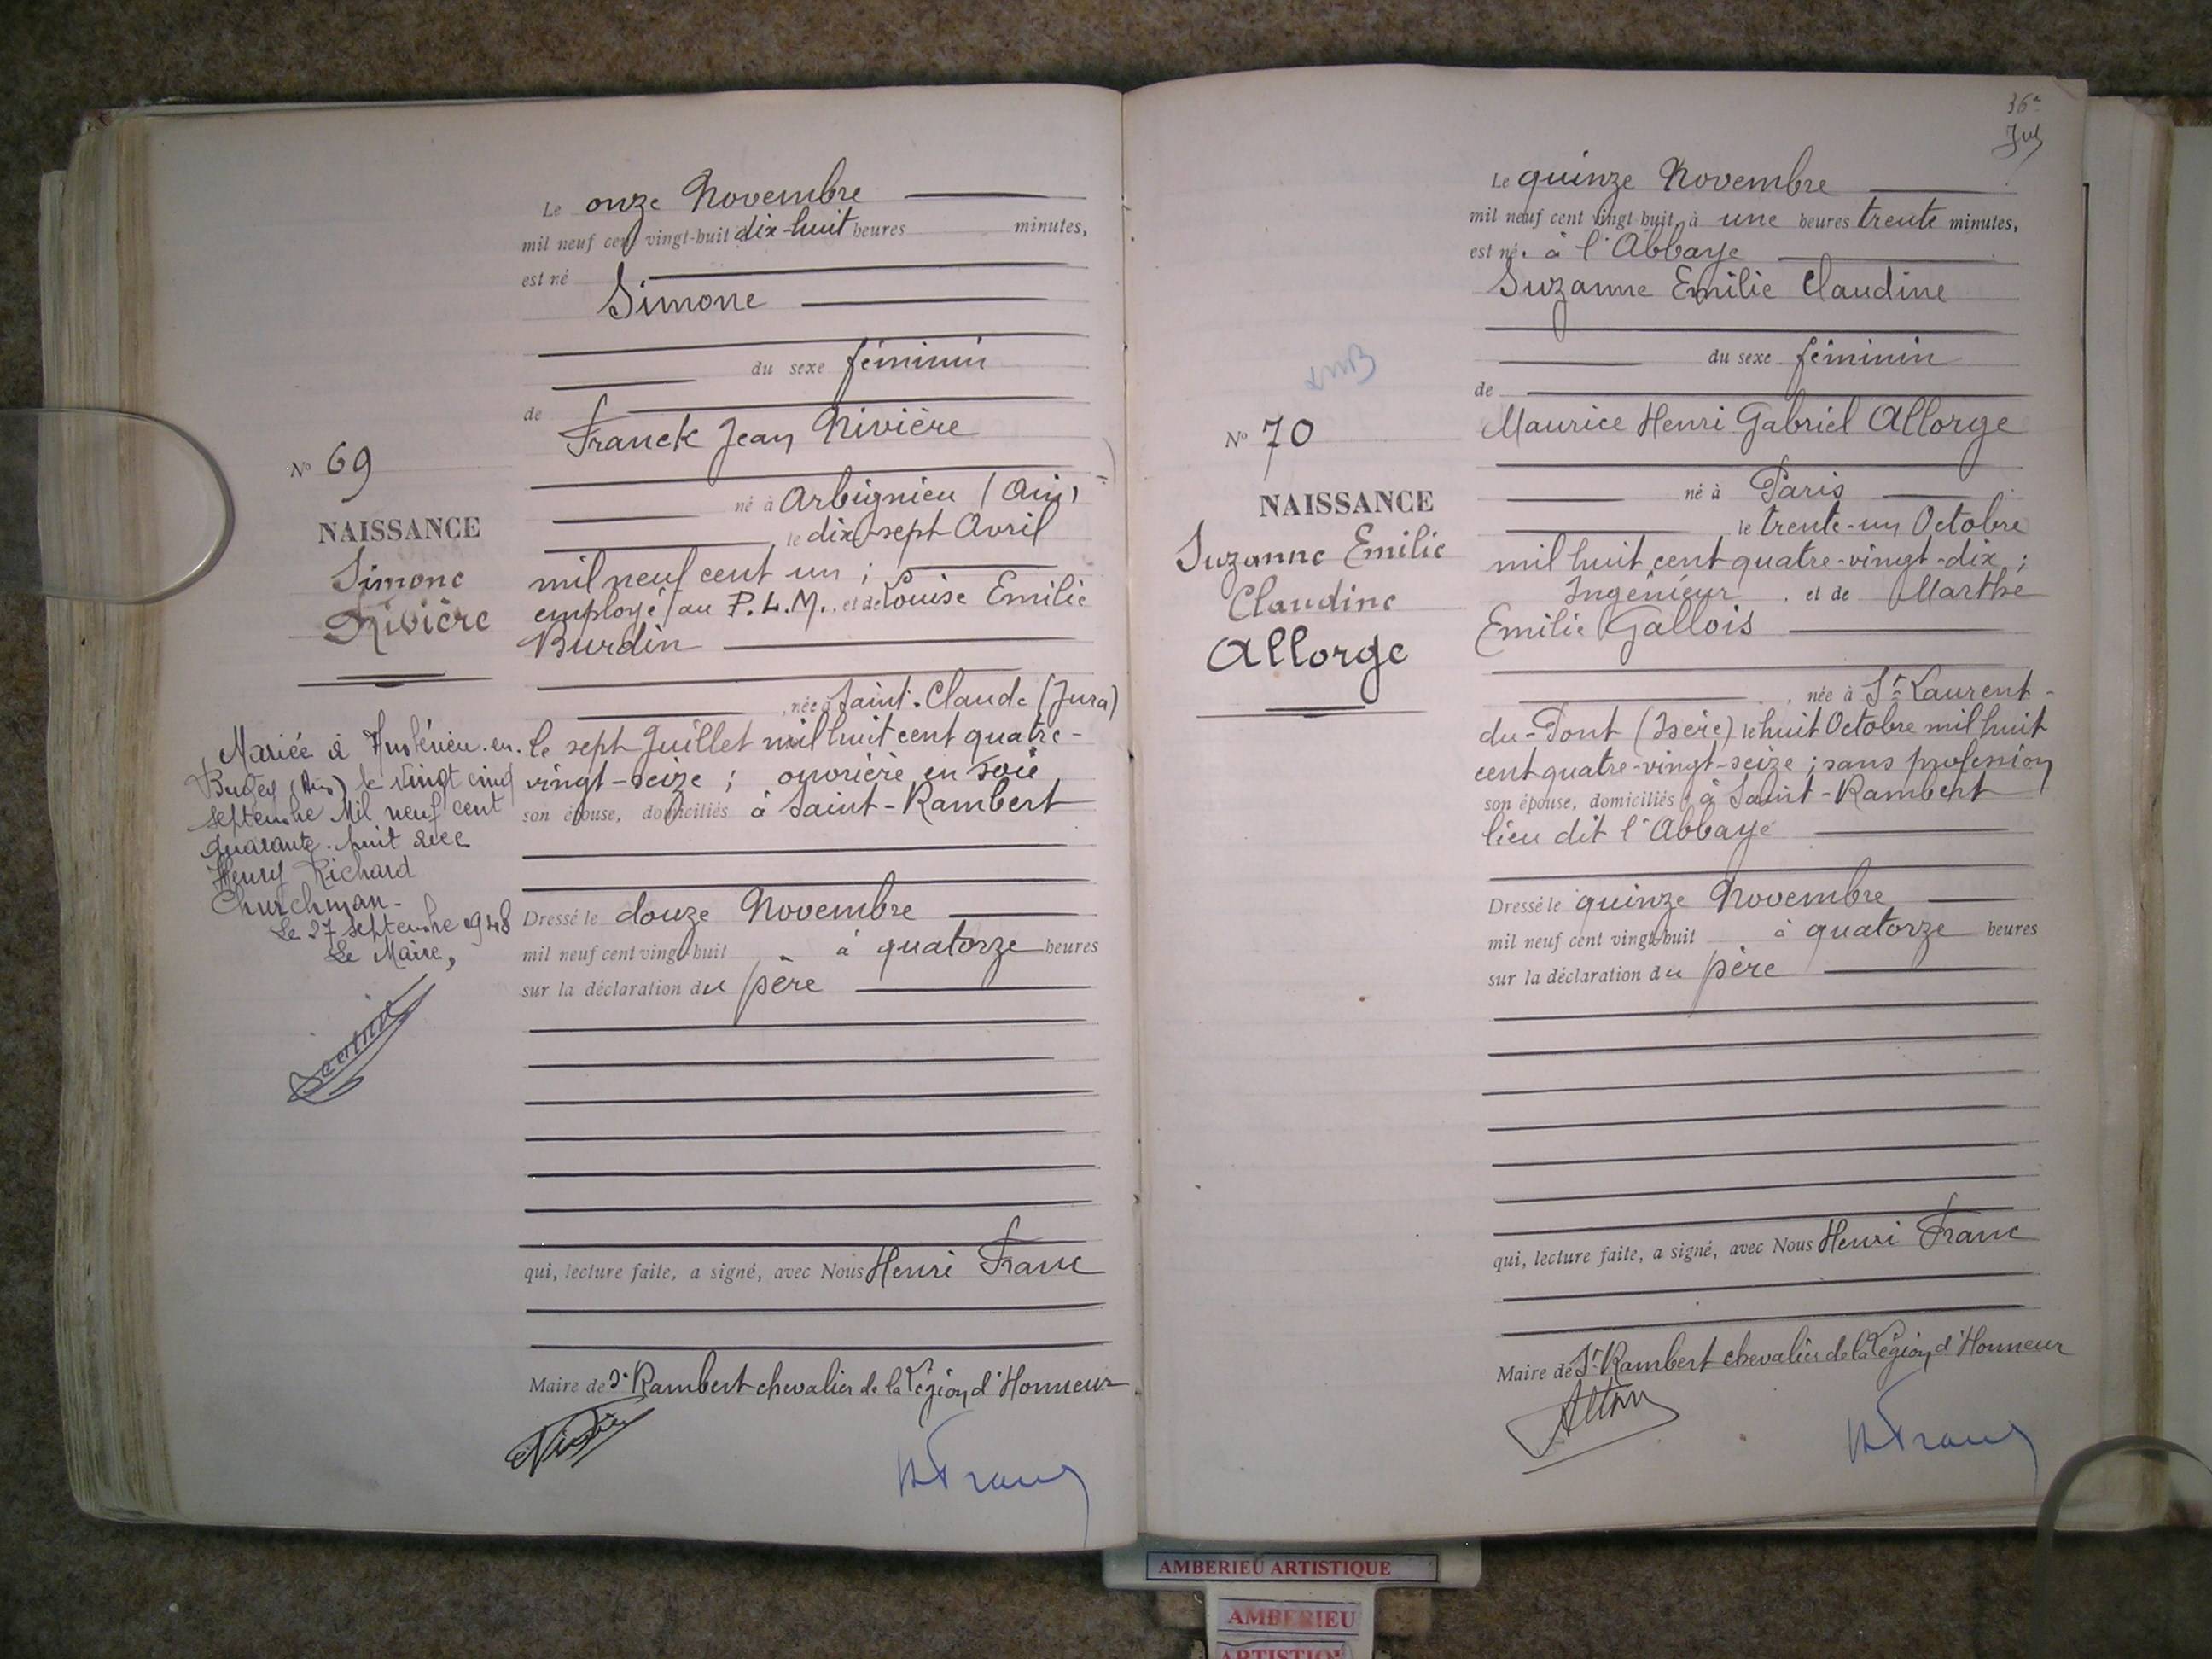 Le onze Novembre
mil neuf cent vingt-huit dix-huit heures minutes,
est né
Simone
du sexe féminin
de
Franck Jean Nivière
né à Arbignieu (Ain)
le dix-sept Avril
mil neuf cent un ;
employé au P.L.M., et de Louise Emilie
Burdin
née à Saint-Claude (Jura)
le sept Juillet mil huit cent quatre-
vingt-seize ; ouvrière en soie
son épouse, domiciliés à Saint-Rambert
Dressé le douze Novembre
mil neuf cent vingt-huit à quatorze heures
sur la déclaration du père
qui, lecture faite, a signé, avec Nous Henri Franc
Maire de St Rambert chevalier de la Légion d'Honneur
H Franc
No 69
NAISSANCE
Simone
Nivière
Mariée à en.
Bugey (Ain) le vingt cinq
septembre Mil neuf cent
quarante-huit avec
Henry Richard
Churchman-
Le 27 septembre 1948
Le Maire,
36e
Le quinze Novembre
mil neuf cent vingt huit, à une heures trente minutes,
est née à l'Abbaye
Suzanne Emilie Claudine
du sexe féminin
de
Maurice Henri Gabriel Allorge
né à Paris
le trente-un Octobre
mil huit cent quatre-vingt-dix ;
Ingénieur, et de Marthe
Emilie Gallois
née à St Laurent-
du-Pont (Isère) le huit Octobre mil huit
cent quatre-vingt-seize ; sans profession
son épouse, domiciliés à Saint-Rambert
lieu dit l'Abbaye
Dressé le quinze Novembre
mil neuf cent vingt-huit à quatorze heures
sur la déclaration du père
qui, lecture faite, a signé, avec Nous Henri Franc
Maire de St Rambert chevalier de la Légion d'Honneur
H Franc
No 70
NAISSANCE
Suzanne Emilie
Claudine
Allorge
AMBERIEU ARTISTIQUE
AMBERIEU